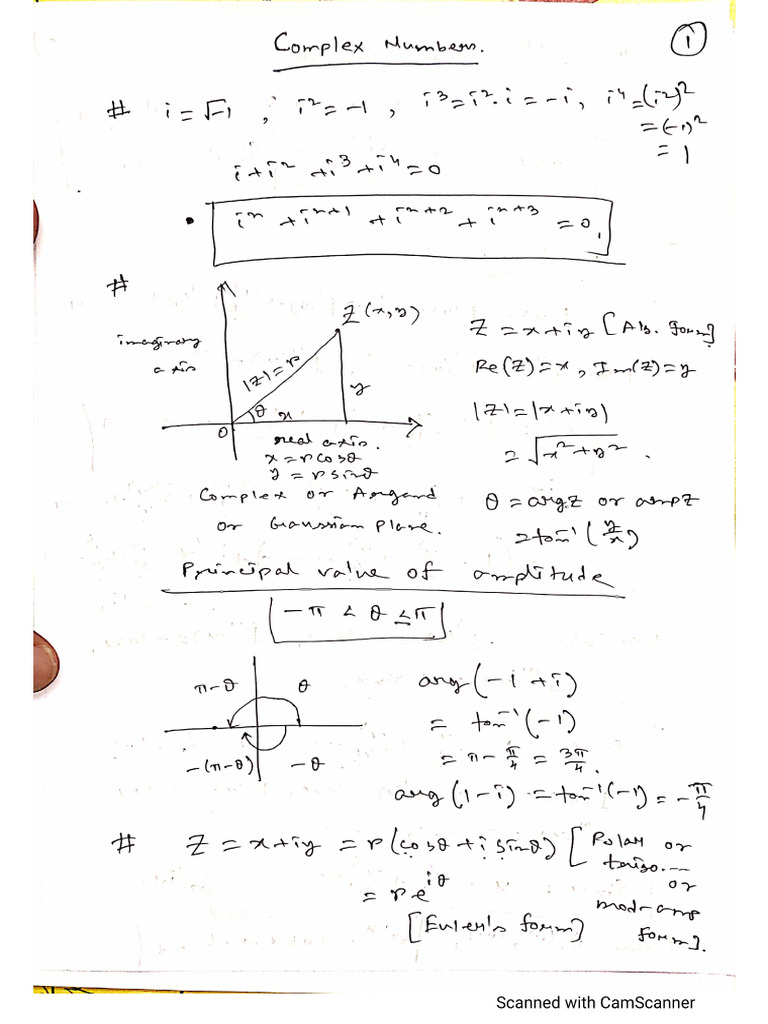 Complex Numbers.
1
# i = √-1 , i² = -1 , i³ = i².i = -i, i⁴ = (i²)²
= (-1)²
= 1
i + i² + i³ + i⁴ = 0
• iⁿ + iⁿ⁺¹ + iⁿ⁺² + iⁿ⁺³ = 0.
#
imaginary axis
Z(x,y)
|Z| = r
θ
x
y
O
real axis.
x = r cosθ
y = r sinθ
Complex or Argand
or Gaussian Plane.
Z = x + iy [Alg. form]
Re(Z) = x, Im(Z) = y
|Z| = |x + iy|
= √x² + y² .
θ = arg Z or amp Z
= tan⁻¹ (y/x)
Principal value of amplitude
-π < θ ≤ π
π-θ
θ
-(π-θ)
-θ
arg (-1 + i)
= tan⁻¹ (-1)
= π - π/4 = 3π/4.
arg (1-i) = tan⁻¹ (-1) = -π/4
# Z = x + iy = r (cosθ + i sinθ) [Polar or
trigo.--
or
mod-amp
form].
= re^iθ
[Euler's form]
Scanned with CamScanner